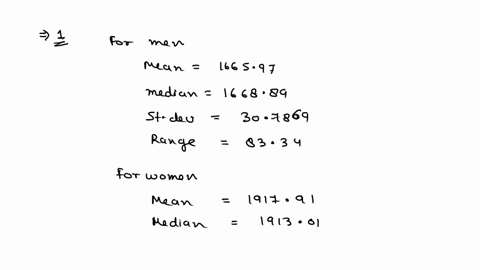 ⇒ 1 For men
Mean = 1665.97
median = 1668.89
St.dev = 30.7869
Range = 83.34
for women
Mean = 1917.91
Median = 1913.01